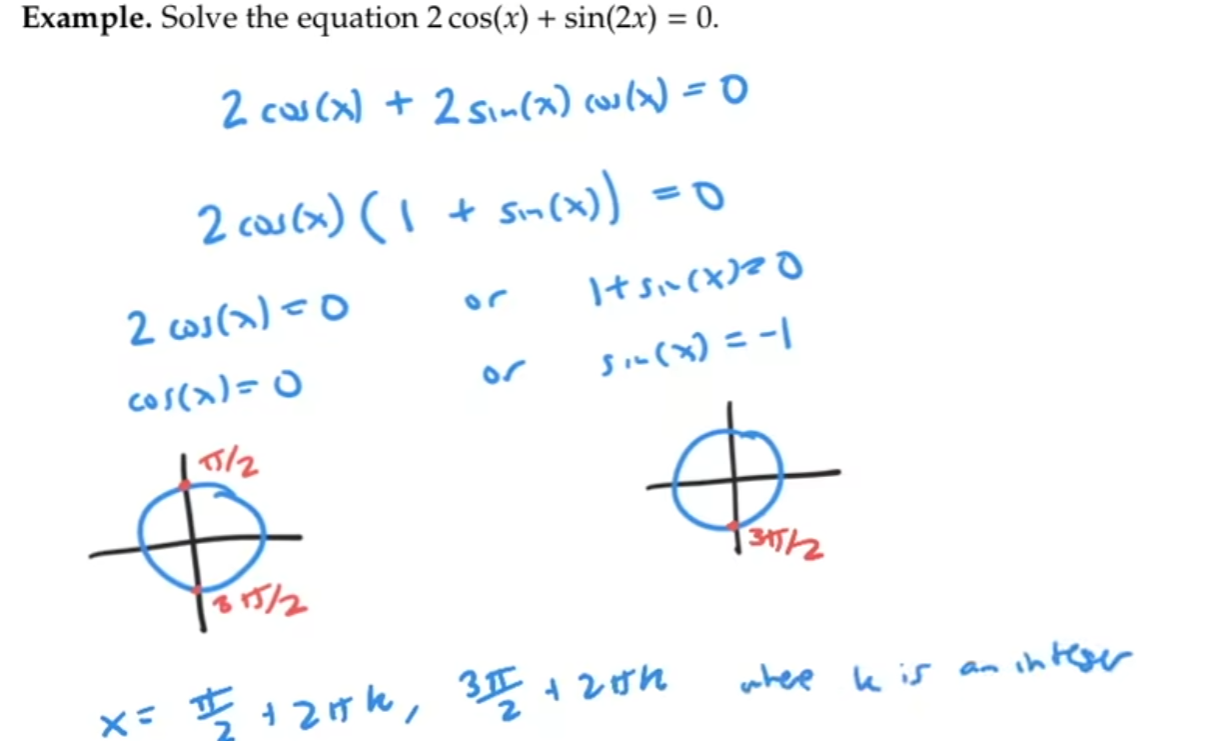 Example. Solve the equation 2 cos(x) + sin(2x) = 0.
2 cos(x) + 2 sin(x) cos(x) = 0
2 cos(x) (1 + sin(x)) = 0
2 cos(x) = 0 or 1 + sin(x) = 0
cos(x) = 0 or sin(x) = -1
π/2
3π/2
3π/2
x = π/2 + 2πk, 3π/2 + 2πk where k is an integer